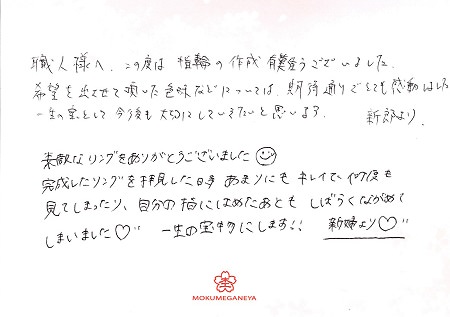 職人様へ この度は指輪の作成有難うございました。
希望を出させて頂いた色味などについては、期待通りでとても感動しました
一生の宝として今後も大切にしていきたいと思います
新郎より
素敵なリングをありがとうございました
完成したリングを拝見した時 あまりにもキレイで、何度も
見てしまったり、自分の指にはめたあとも しばらくながめて
しまいました♡" 一生の宝物にします!! 新婦より♡"
MOKUMEGANEYA